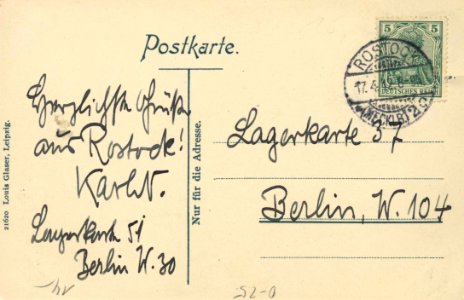 Postkarte.
5
DEUTSCHES REICH
ROSTOCK
17.4.
(MECKLB) 2.
Herzlichste Grüße
aus Rostock!
Karl W.
Lagerkarte 51
Berlin W. 30
Nur für die Adresse.
Lagerkarte 57
Berlin, W. 104
21620 Louis Glaser, Leipzig.